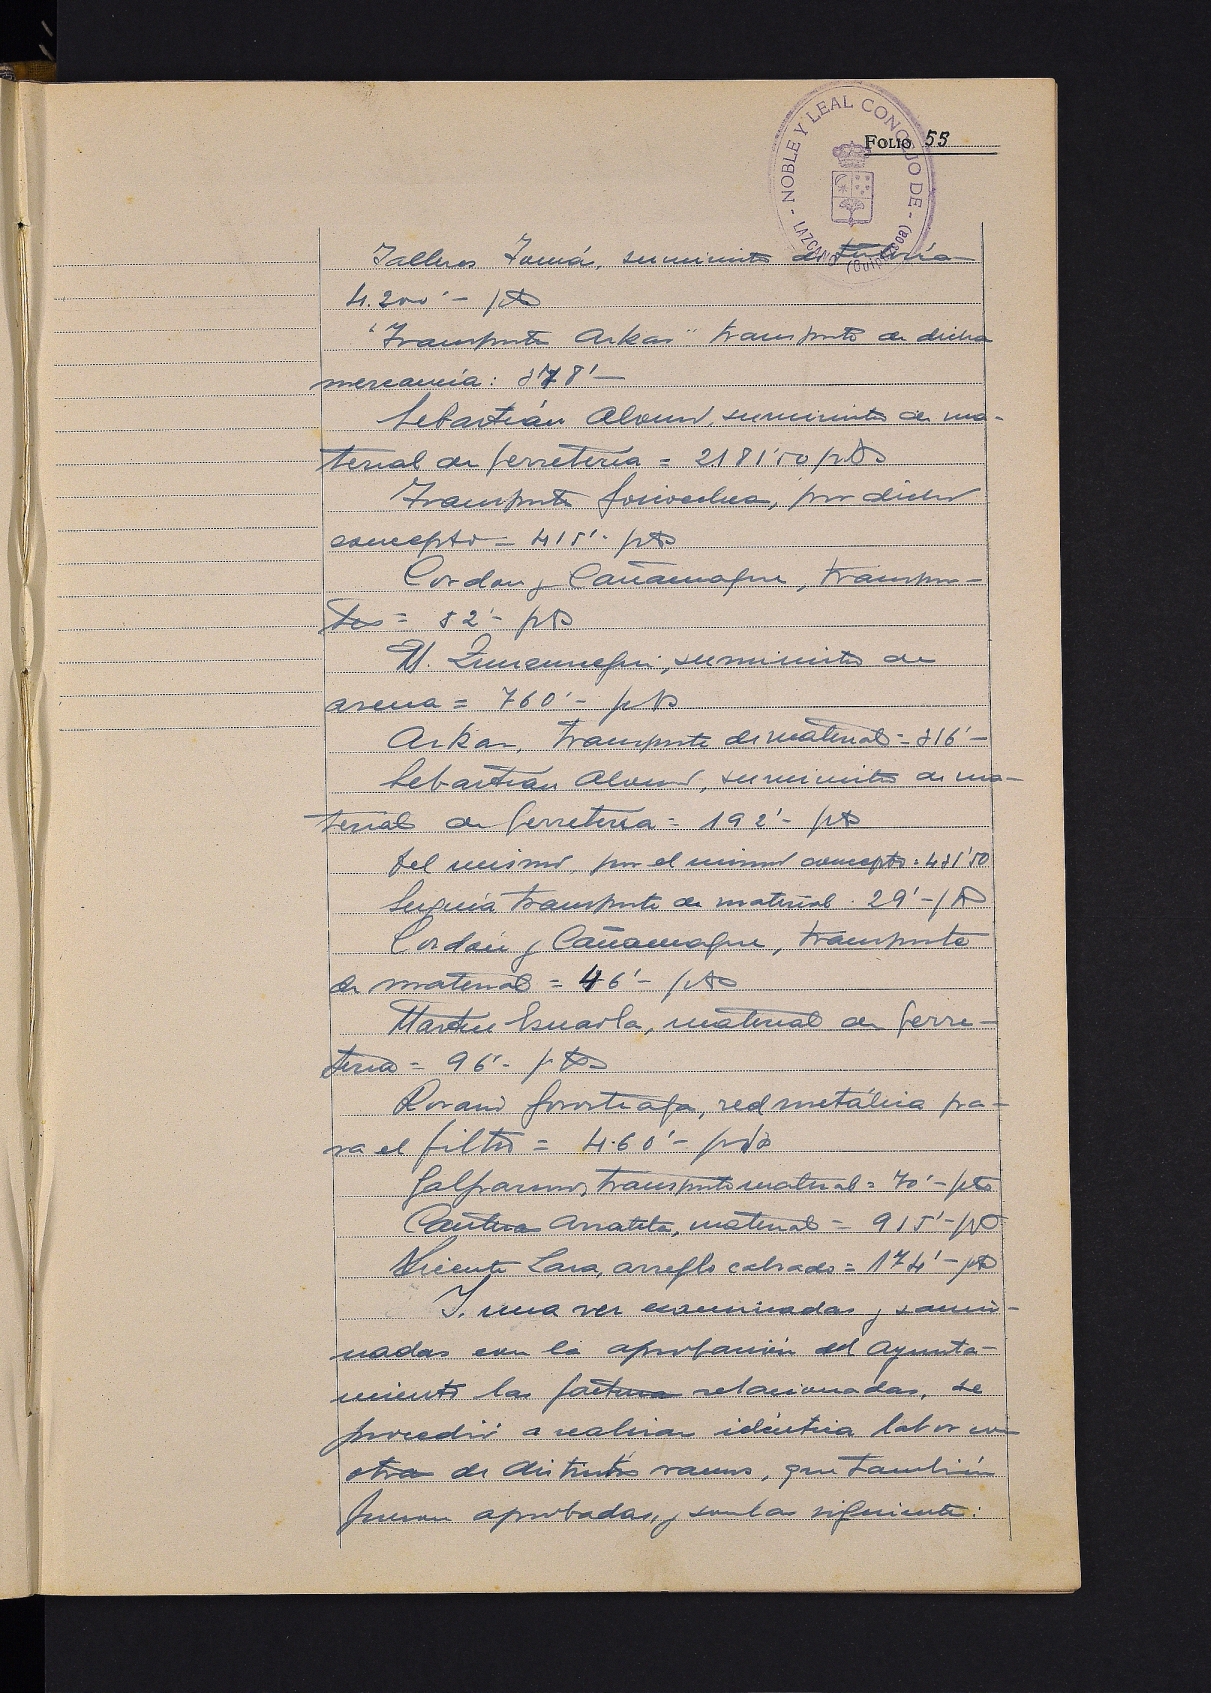 NOBLE Y LEAL CONCEJO DE - LAZCANO (Guipúzcoa) -
FOLIO 55
Talleres suministro de tubería
4.200'- pts
"Transportes Arkas" transporte de dicha
mercancía: 378'-
Sebastián suministro de ma-
terial de ferretería = 2181'50 pts
Transportes Goicoechea, por dicho
concepto = 415'- pts
Cordon y Cañamaque, transpor-
tes = 82'- pts
suministro de
arena = 760'- pts
Arkas, transporte de material = 316'-
Sebastián suministro de ma-
terial de ferretería = 192'- pts
Del mismo, por el mismo concepto = 431'50
Seguía transporte de material. 29'- pts
Cordón y Cañamaque, transporte
de material = 46'- pts
Martin material de ferre-
tería = 96'- pts
Gorostiaga, red metálica pa-
ra el filtro = 460'- pts
Galparsoro, transporte material = 70'- pts
Cantera material = 915'- pts
Vicente Lasa, arreglo calzado = 174'- pts
Y, una vez examinadas y sancio-
nadas con la aprobación del Ayunta-
miento las facturas relacionadas, se
procedió a realizar idéntica labor con
otras de distintos ramos, que también
fueron aprobadas, y son las siguientes: